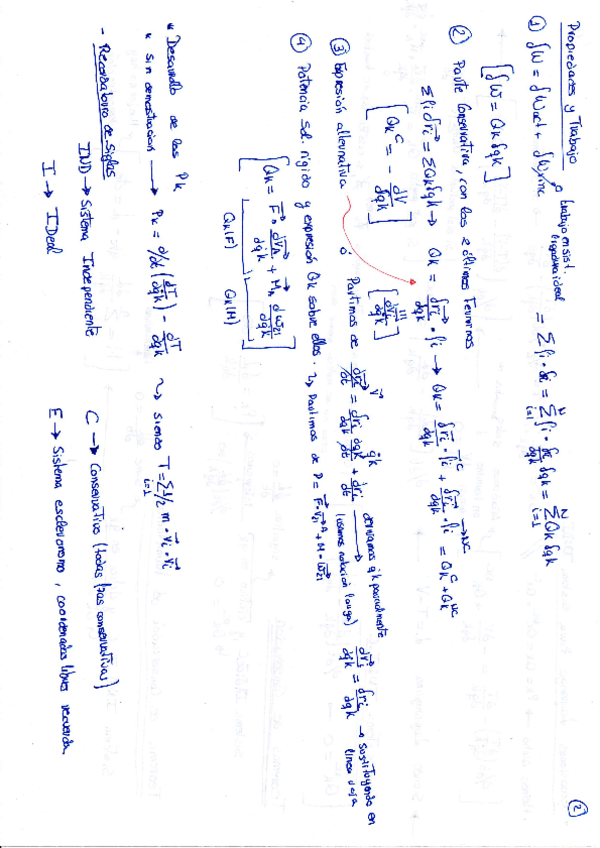 ②
Propiedades y Trabajo
① δW = δWact + δWinc → trabajo en sist. ligadura ideal = Σ fi · δri = Σ(i=1, N) fi · δri/δqk δqk = Σ(i=1, N) Qk δqk
[δW = Qk δqk]
② Parte Conservativa, con los 2 últimos Términos
Σ fi δri = Σ Qk δqk → Qk = δri/δqk · fi → Qk = δri/δqk · fi^C + δri/δqk · fi^NC = Qk^C + Qk^NC
[Qk^C = - dV/δqk]
③ Expresión alternativa ó [dVi/dq̇k] Partimos de dri/dt = dri/dqk dqk/dt + dri/dt → derivamos q̇k parcialmente dVi/dq̇k = dri/dqk → Sustituyendo en linea roja
V q̇k (usamos notación larga)
④ Potencia Sol. rígido y expresión Qk sobre ellos. ↝ Partimos de P = F · V + M · ω21
[Qk = F · dVA/dq̇k + MA dω21/dq̇k]
Qk(F) Qk(M)
* Desarrollo de los Pk
* sin demostracion → Pk = d/dt (dT/dq̇k) - dT/dqk ↝ siendo T = Σ(i=1) 1/2 m · vi · vi
- Recordatorio de Siglas
IND → Sistema Independiente C → Conservativo (todas fzas conservativas)
I → IDeal E → Sistema esclerónomo, coordenadas libres recuerda